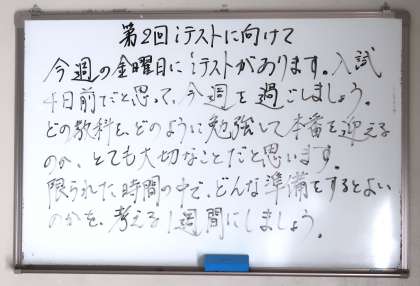 第2回iテストに向けて
今週の金曜日にiテストがあります。入試
4日前だと思って、今週を過ごしましょう。
どの教科を、どのように勉強して本番を迎える
のか、とても大切なことだと思います。
限られた時間の中で、どんな準備をするとよい
のかを、考える1週間にしましょう。